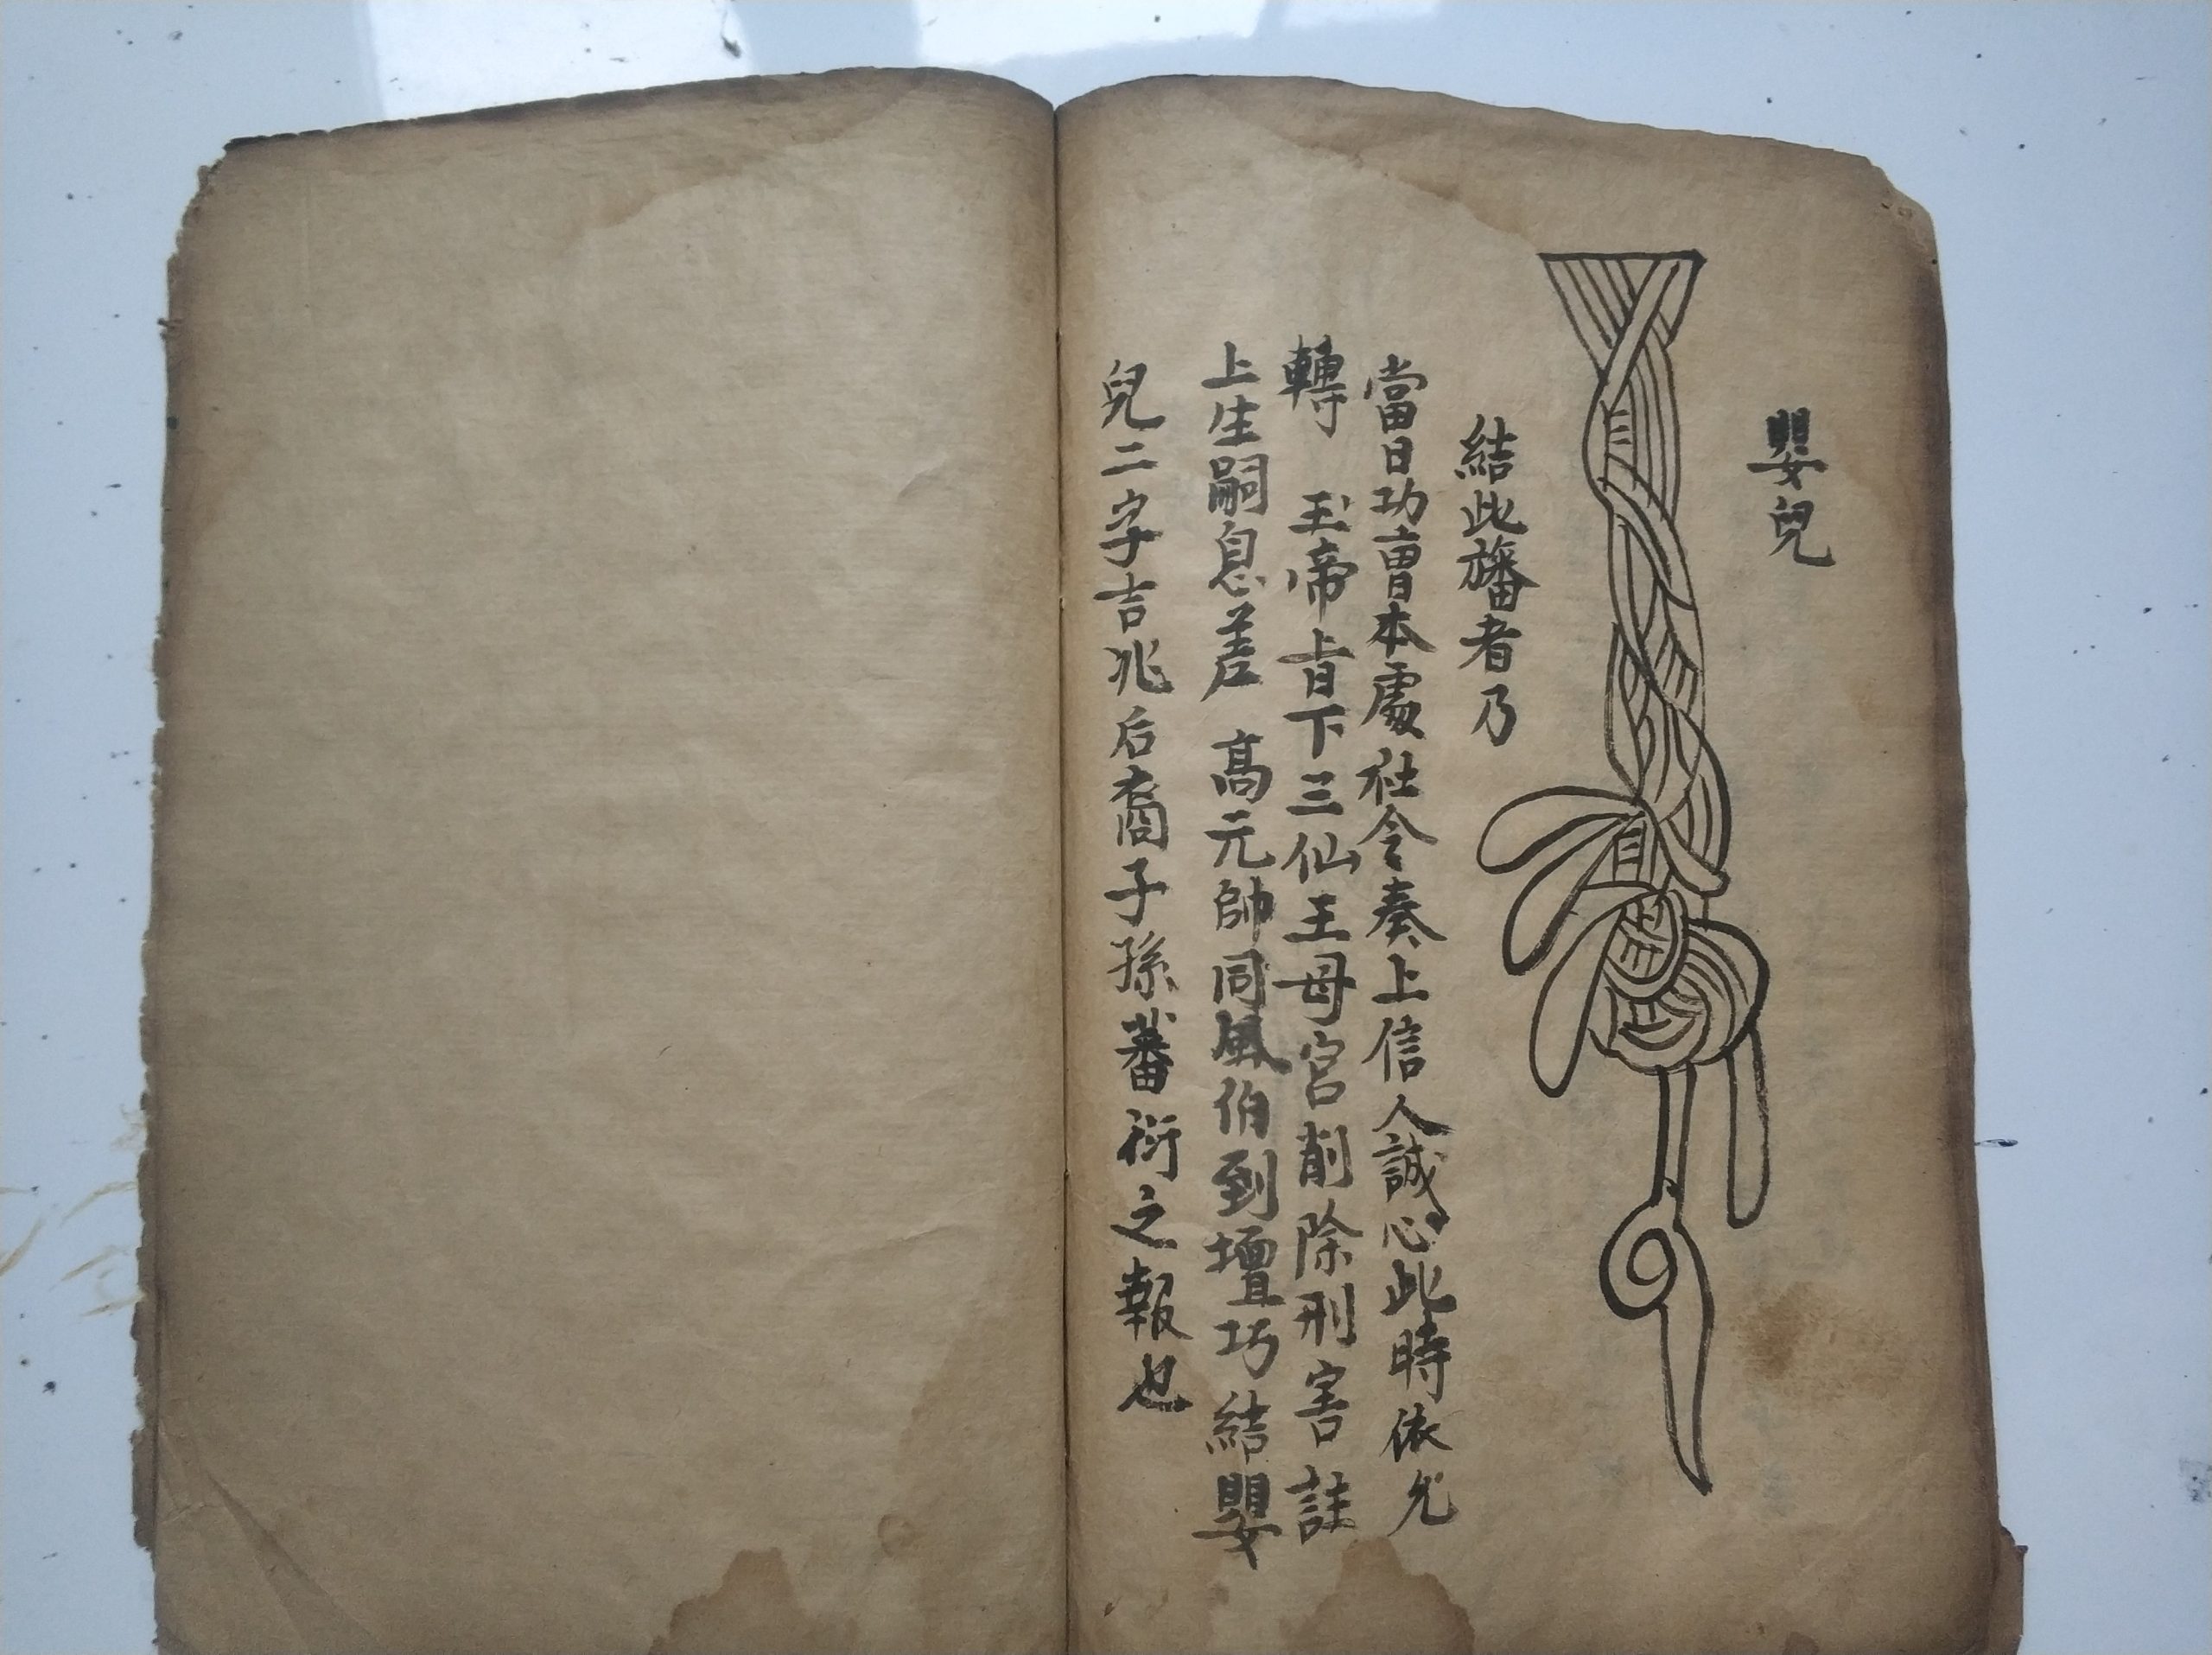 嬰兒
結此旛者乃
當日功曹本處社令奏上信人誠心此時依允
轉　玉帝旨下三仙王母宮削除刑害註
上生嗣息差　高元帥同風伯到壇巧結嬰
兒二字吉兆后裔子孫蕃衍之報也